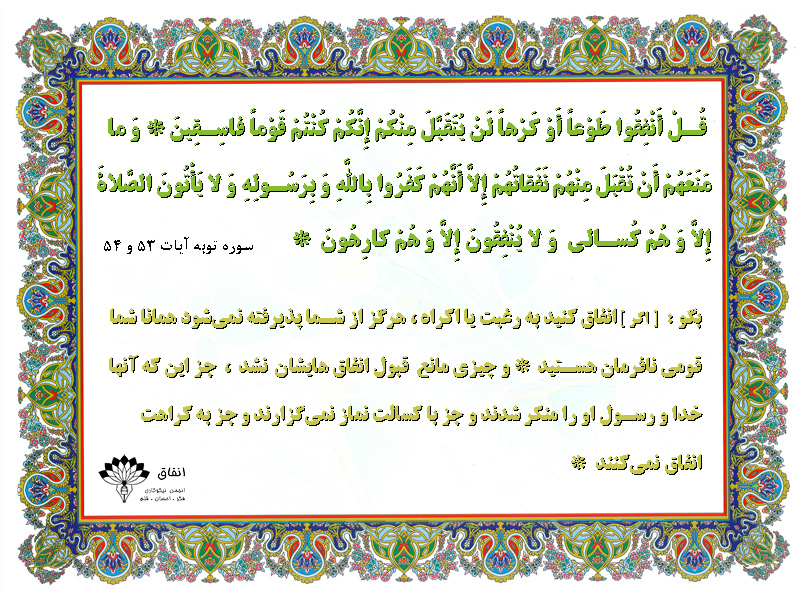 قُـلْ أَنْفِقُوا طَوْعاً أَوْ كَرْهاً لَنْ يُتَقَبَّلَ مِنْكُمْ إِنَّكُمْ كُنْتُمْ قَوْماً فاسِـقِينَ * وَ ما
مَنَعَهُمْ أَنْ تُقْبَلَ مِنْهُمْ نَفَقاتُهُمْ إِلاَّ أَنَّهُمْ كَفَرُوا بِاللَّهِ وَ بِرَسُـولِهِ وَ لا يَأْتُونَ الصَّلاةَ
إِلاَّ وَ هُمْ كُسـالى وَ لا يُنْفِقُونَ إِلاَّ وَ هُمْ كارِهُونَ *
سوره توبه آیات ۵۳ و ۵۴
بگو : [ اگر ] انفاق کنید به رغبت یا اکراه ، هرگز از شـما پذیرفته نمی‌شود همانا شما
قومی نافرمان هستـید * و چیزی مانع قبول انفاق هایشان نشد ، جز این که آنها
خدا و رسـول او را منکر شدند و جز با کسالت نماز نمی‌گزارند و جز به کراهت
انفاق نمی‌کنند *
انفاق
انجمن نیکوکاری
فکر ، احسان ، قلم